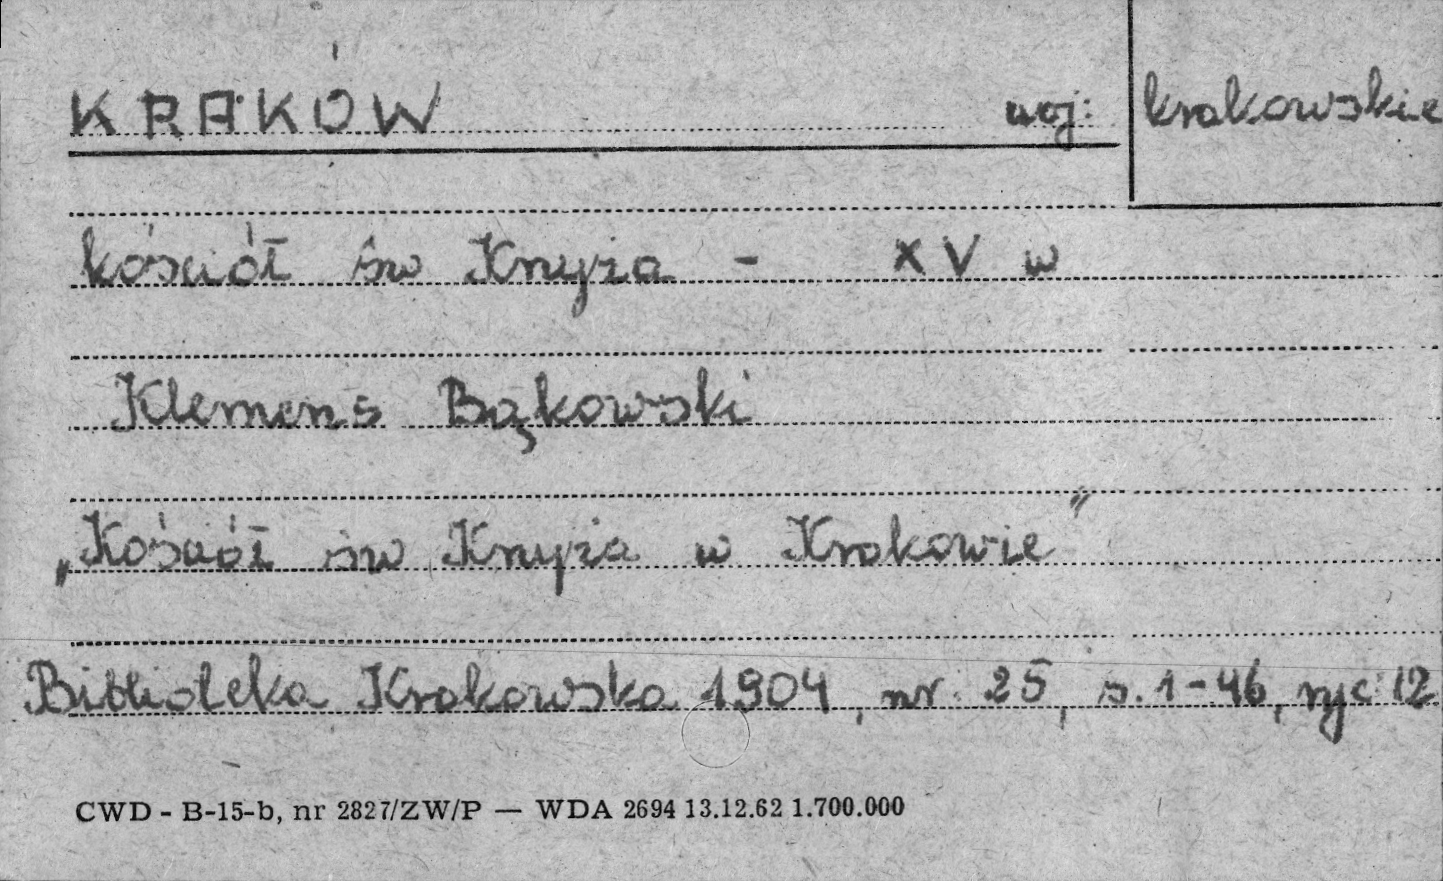 KRAKÓW woj: krakowskie
kościół św Krzyża - XV w
Klemens Bąkowski
„Kościół św Krzyża w Krakowie"
Biblioteka Krakowska 1904, nr. 25, s. 1-46, ryc 12
CWD - B-15-b, nr 2827/ZW/P — WDA 2694 13.12.62 1.700.000